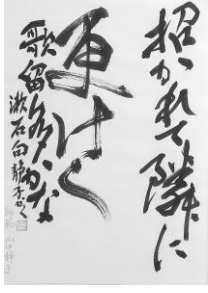 招かれて隣に
更けし
歌留多かな
漱石句 静子かく